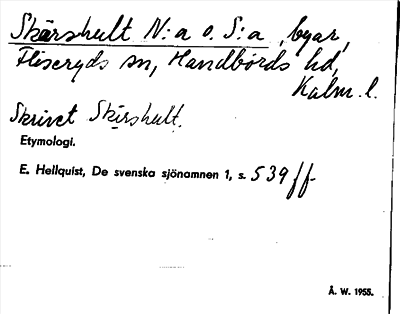 Skärshult N:a o. S:a, byar,
Fliseryds sn, Handbörds hd,
Kalm. l.
Skrivet Skirshult.
Etymologi.
E. Hellquist, De svenska sjönamnen 1, s. 539 ff.
Å. W. 1955.